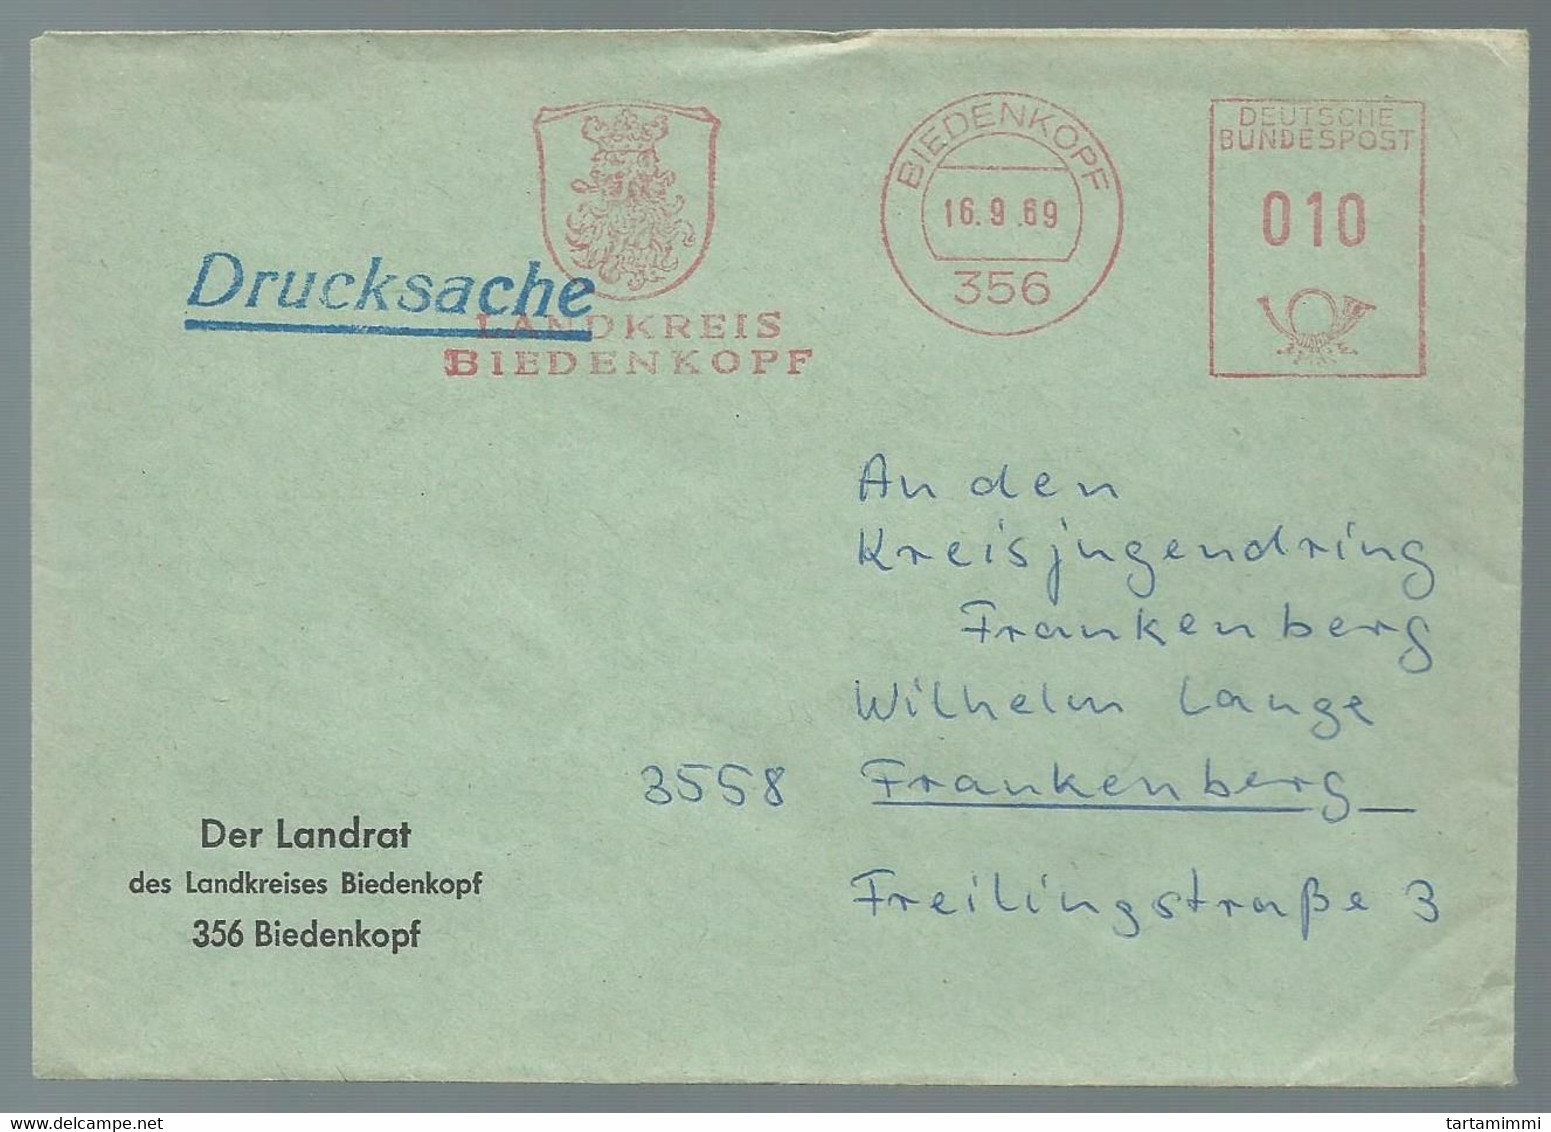 DEUTSCHE
BUNDESPOST
BIEDENKOPF
16.9.69
010
356
Drucksache
LANDKREIS
BIEDENKOPF
An den
Kreisjugendring
Frankenberg
Wilhelm Lange
3558 Frankenberg
Freilingstraße 3
Der Landrat
des Landkreises Biedenkopf
356 Biedenkopf
www.delcampe.net
tartamimmi